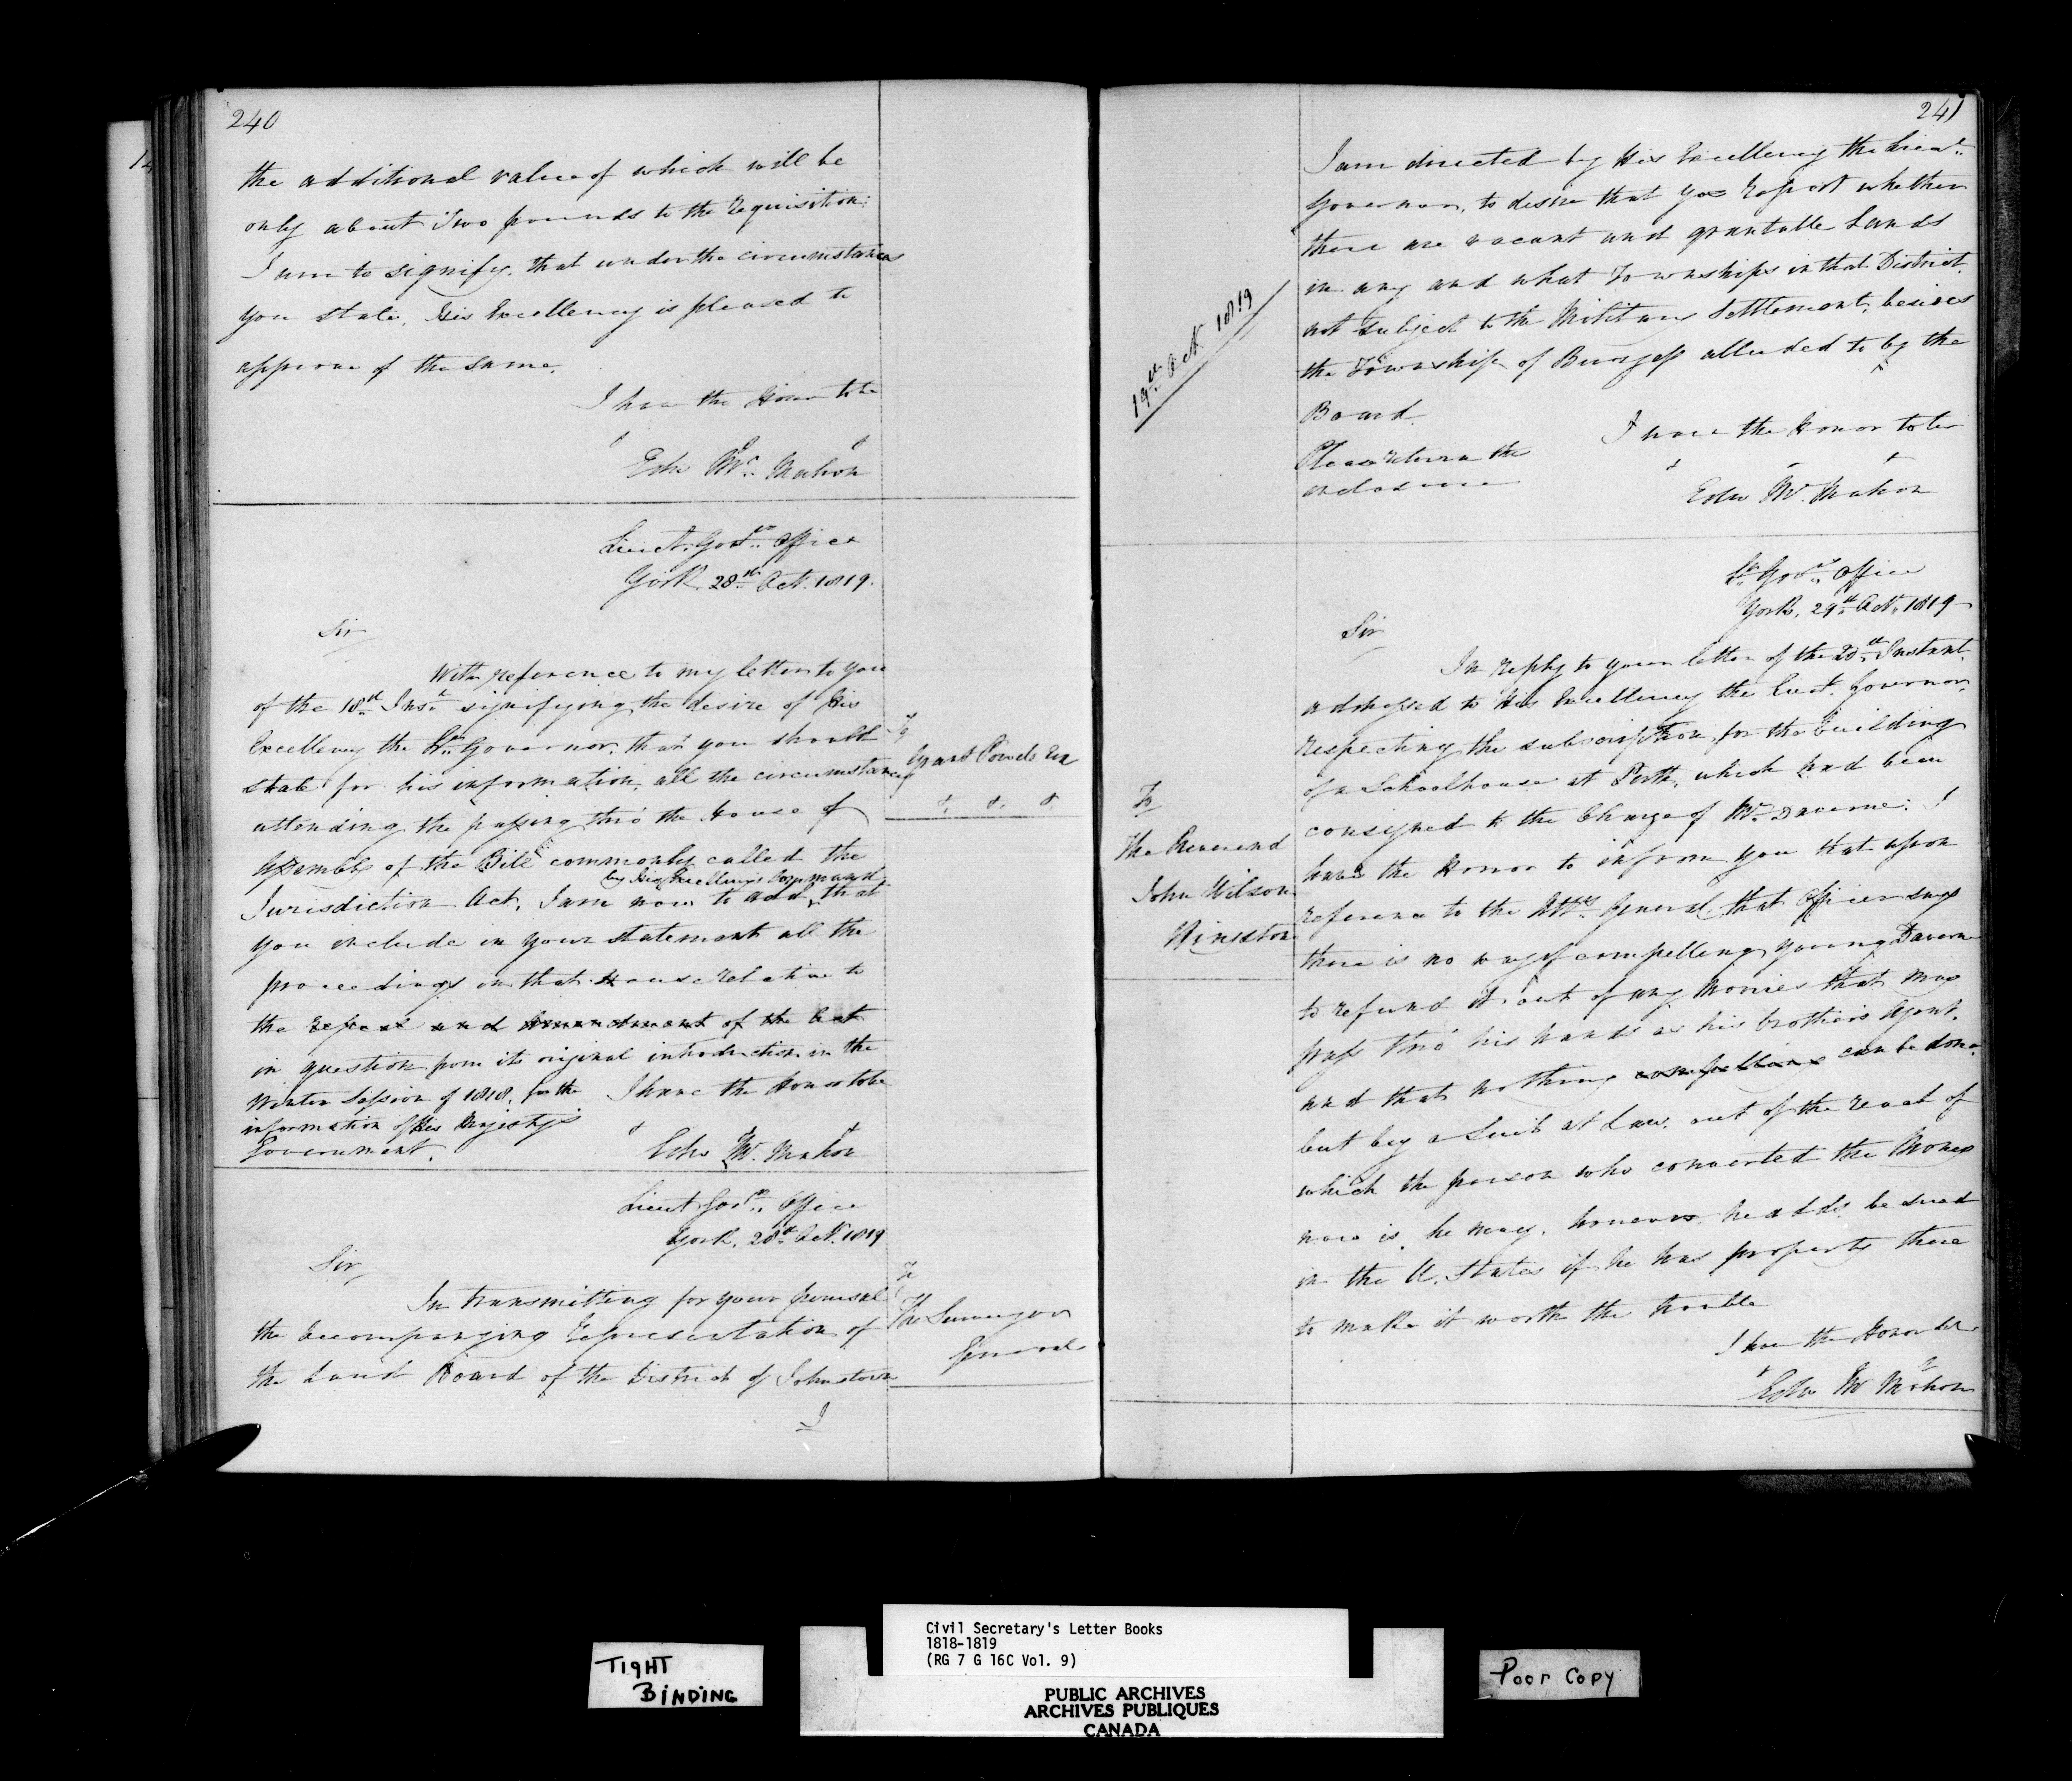 240
the additional value of which will be
only about Two pounds to the requisition:
I am to signify, that under the circumstances
you state, His Excellency is pleased to
approve of the same.
I have the Honor to be
Edw McMahon
Lieut. Govrs. Office
York, 28th Oct. 1819.
Sir
With reference to my letter to you
of the 18th Inst signifying the desire of His
Excellency the Lt. Governor, that you should
state for his information, all the circumstances
attending the passing thro' the House of
Assembly of the Bill commonly called the
by His Excellency's Command
Jurisdiction Act, I am now to add, that
you include in your statement all the
proceedings in that House relative to
the repeal and Amendment of the Act
in question from its original introduction in the
Winter Session of 1818, for the
information of His Majesty's
Government.
I have the Honor to be
Edw McMahon
To
Grant Powell Esq
&. &. &
Lieut. Govrs. Office
York, 28th Oct. 1819
Sir,
In transmitting for your perusal
the accompanying Representation of
the Land Board of the District of Johnstown
I
To
The Surveyor
General
241
I am directed by His Excellency the Lieut.
Governor, to desire that you report whether
there are vacant and grantable Lands
in any and what Townships in that District,
not subject to the Military Settlement, besides
the Township of Burgess alluded to by the
Board.
Please return the
enclosure
I have the Honor to be
Edw McMahon
19th Oct 1819
Lt. Govrs. Office
York, 29th Oct. 1819
Sir
In reply to your letter of the 20th Instant,
addressed to His Excellency the Lieut. Governor,
respecting the subscription for the building
of a Schoolhouse at Perth, which had been
consigned to the Charge of Mr. Daverne: I
have the Honor to inform you that upon
reference to the Atty. General, that Officer says
there is no way of compelling young Daverne
to refund it out of any Monies that may
pass thro' his hands as his brother's Agent,
and that nothing compellions can be done,
but by a Suit at Law, out of the reach of
which the person who converted the Money
now is, he may, however, he adds, be sued
in the U. States if he has property there
to make it worth the trouble
I have the Honor to be
Edw McMahon
To
The Reverend
John Wilson
Kingston
TIGHT
BINDING
Civil Secretary's Letter Books
1818-1819
(RG 7 G 16C Vol. 9)
PUBLIC ARCHIVES
ARCHIVES PUBLIQUES
CANADA
Poor Copy